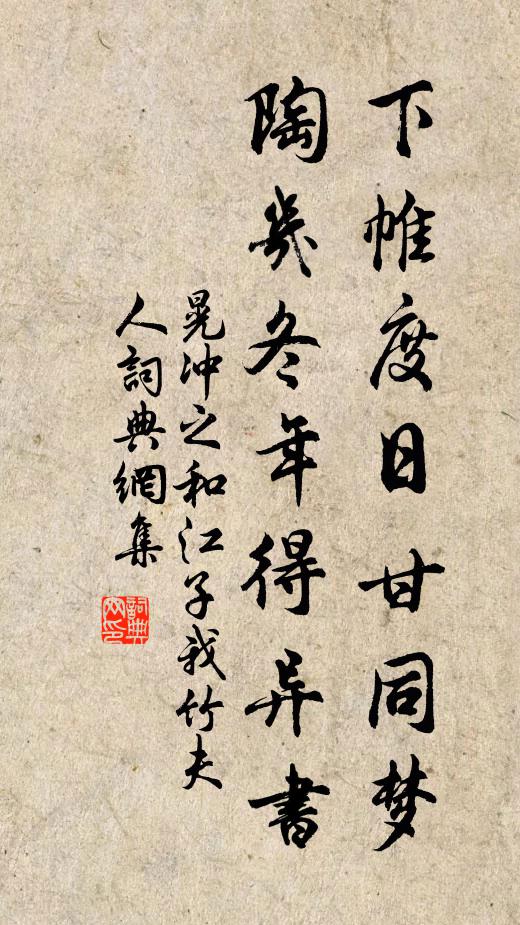 下帷度日甘同梦
陶幾冬年得异書
晁冲之和江子我竹夫
人詞典網集
詞典
网印